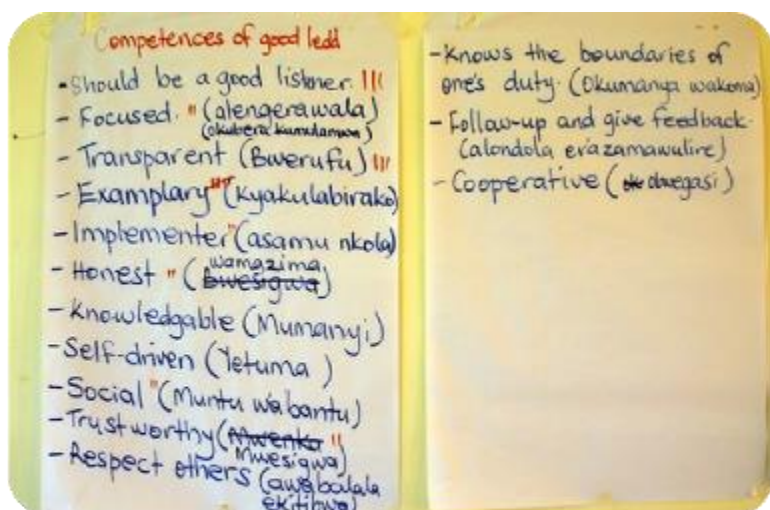 Competences of good ledd
- Should be a good listner. |||
- Focused. " (alengerawala)
(okubera kumulamwa)
- Transparent (Bwerufu) |||
- Examplary "" (Kyakulabirako)
- Implementer " (asamu nkola)
wamazima
- Honest " (bwesigwa)
- Knowledgable (Mumanyi)
- Self-driven (Yetuma )
- Social " (Muntu wabantu)
- Trustworthy (Mwenko "
Mwesigwa)
- Respect others (awabalala
ekitibwa)
- Knows the boundaries of
one's duty. (Okumanya wakoma)
- Follow-up and give feedback.
(alondola era'zamawulire)
- Cooperative ( obwegasi)